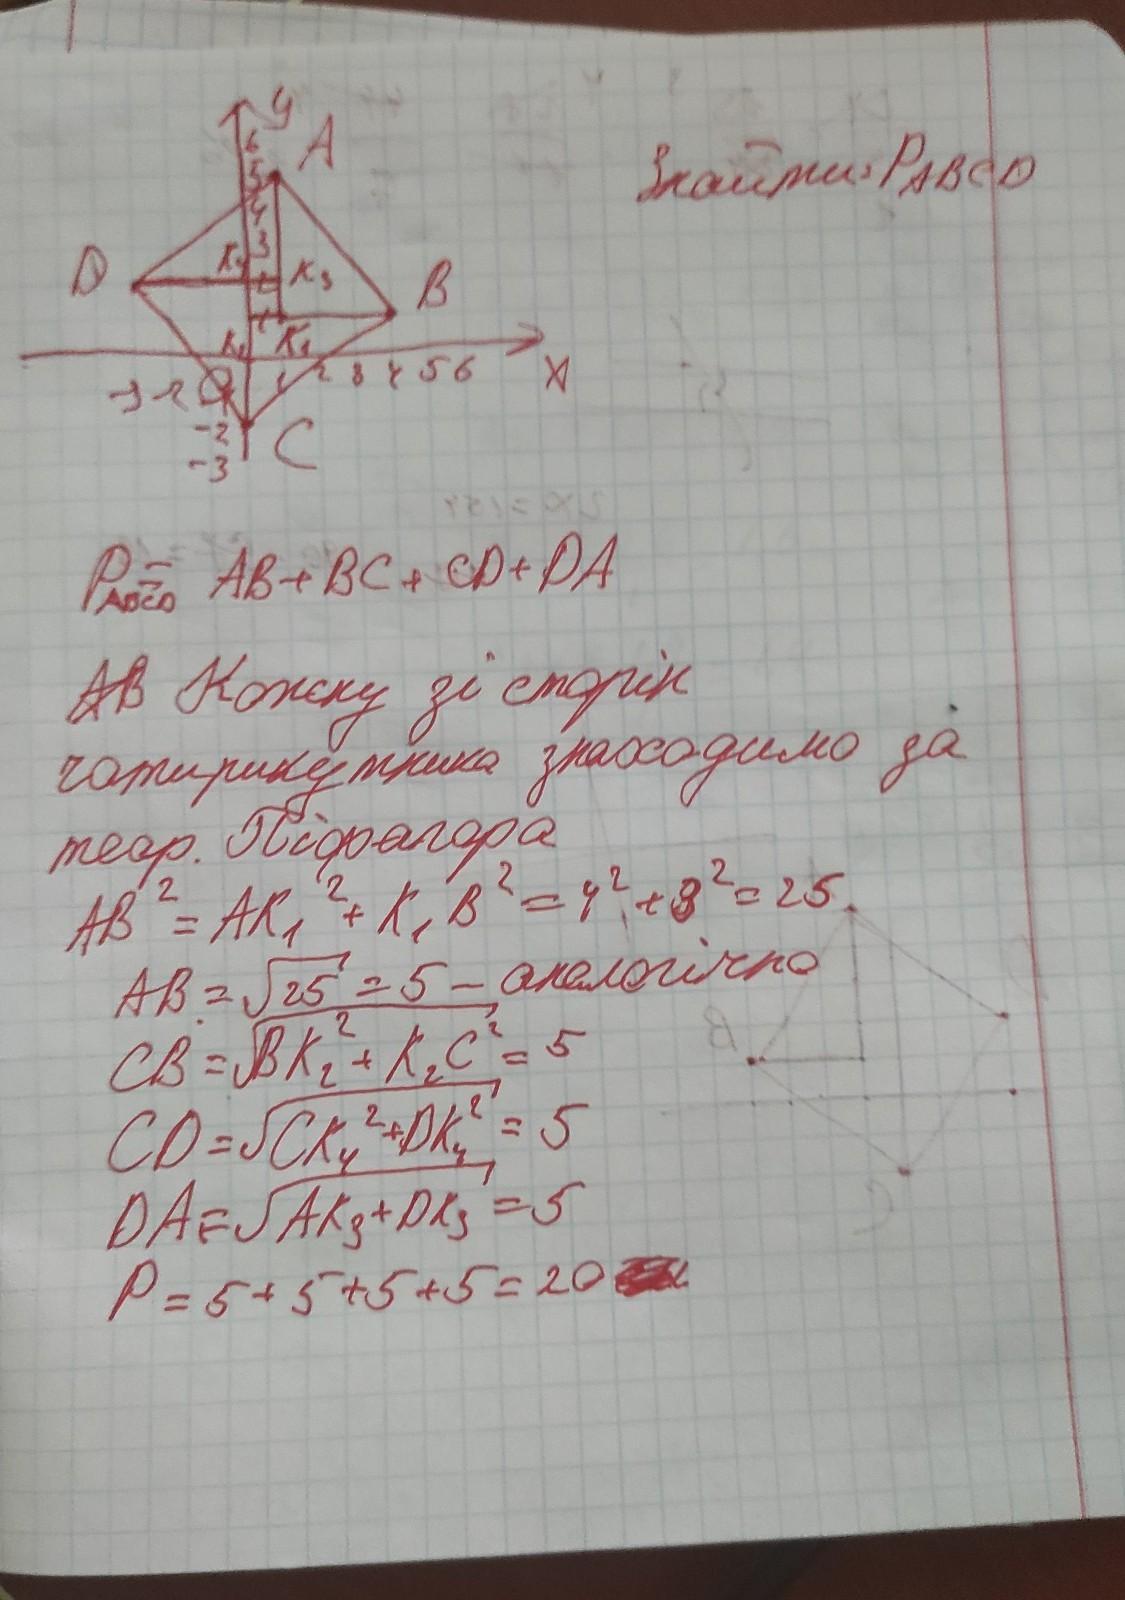 Знайти: PABCD
y
6
A
5
4
3
D
K3
B
2
1
K1
-3 -2
1 2 3 4 5 6
X
-2
C
-3
PABCD = AB + BC + CD + DA
AB Кожну зі сторін
чотирикутника знаходимо за
теор. Піфагора
AB² = AK₁² + K₁B² = 4² + 3² = 25
AB = √25 = 5 – аналогічно
CB = √BK₂² + K₂C² = 5
CD = √CK₄² + DK₄² = 5
DA = √AK₃ + DK₃² = 5
P = 5 + 5 + 5 + 5 = 20